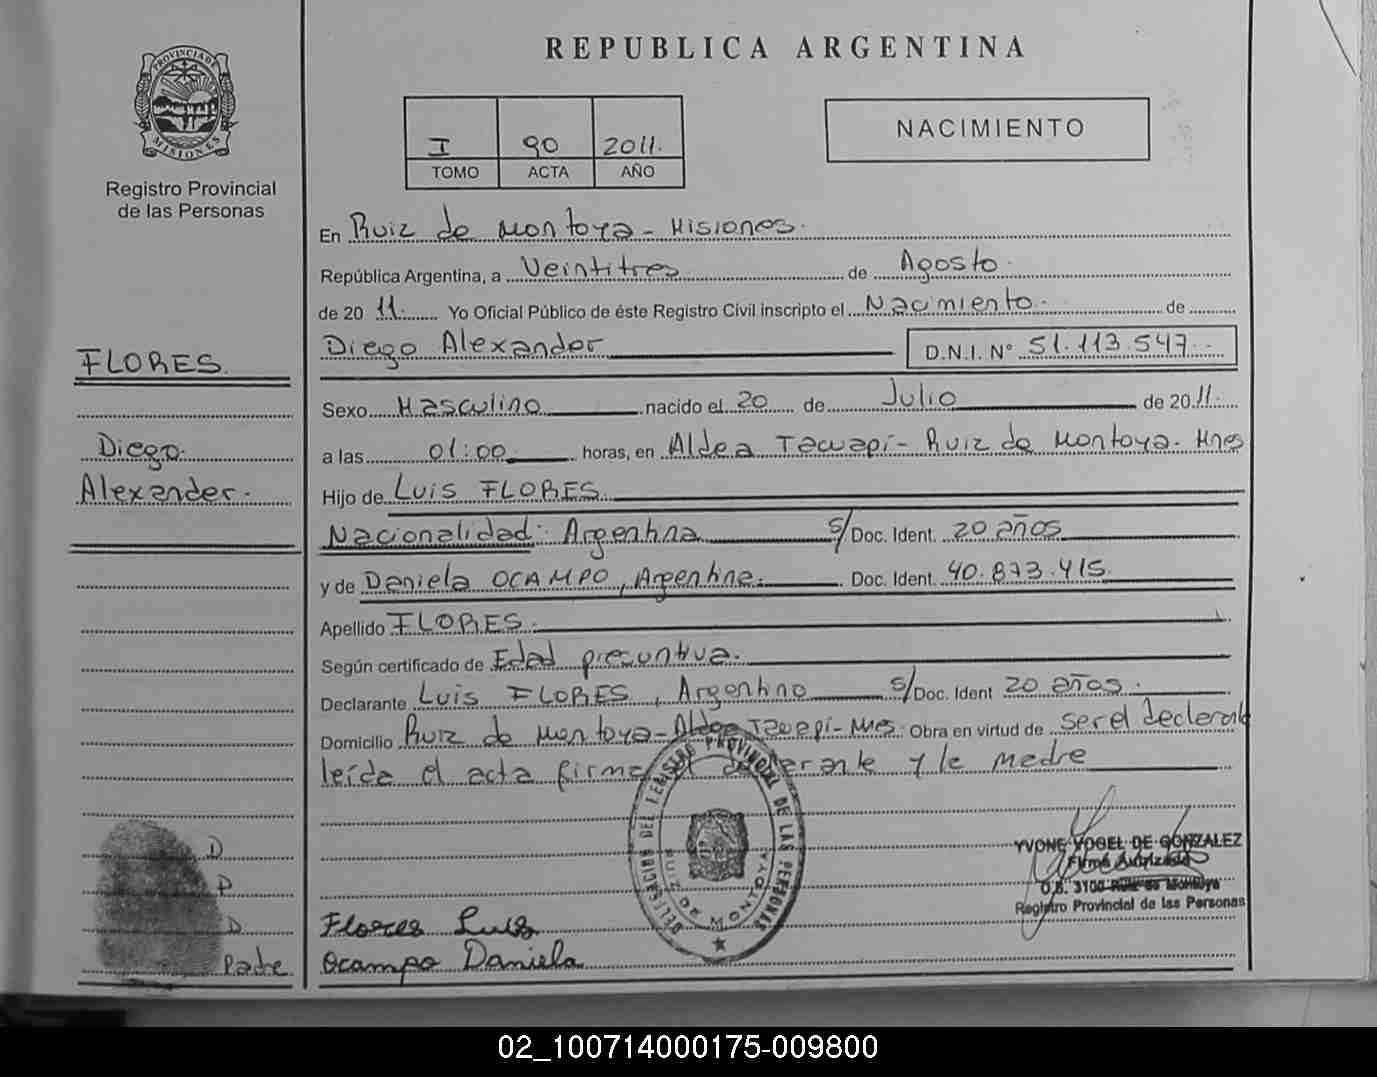 REPUBLICA ARGENTINA
PROVINCIA DE
MISIONES
Registro Provincial
de las Personas
I 90 2011.
TOMO ACTA AÑO
NACIMIENTO
En Ruiz de Montoya - Misiones.
República Argentina, a Veintitres de Agosto.
de 20 11. Yo Oficial Público de éste Registro Civil inscripto el Nacimiento. de
Diego Alexander D.N.I. N° 51.113.547
FLORES.
Sexo Masculino nacido el 20 de Julio de 2011.
Diego.
a las 01:00 horas, en Aldea Tacuapí - Ruiz de Montoya. Mnes
Alexander.
Hijo de Luis FLORES
Nacionalidad: Argentina s/ Doc. Ident. 20 años
y de Daniela OCAMPO, Argentina. Doc. Ident. 40.873.415
Apellido FLORES.
Según certificado de Edad presuntiva.
Declarante Luis FLORES, Argentino s/ Doc. Ident 20 años.
Domicilio Ruiz de Montoya - Aldea Tacuapí - Mnes. Obra en virtud de ser el declarante
leída el acta firma el declarante y la madre
DELEGACION DEL REGISTRO PROVINCIAL DE LAS PERSONAS
RUIZ DE MONTOYA
YVONE VOGEL DE GONZALEZ
Firma Autorizada
O.S. 3100 Ruiz de Montoya
Registro Provincial de las Personas
D
P
D
Padre
Flores Luis
Ocampo Daniela
02_100714000175-009800